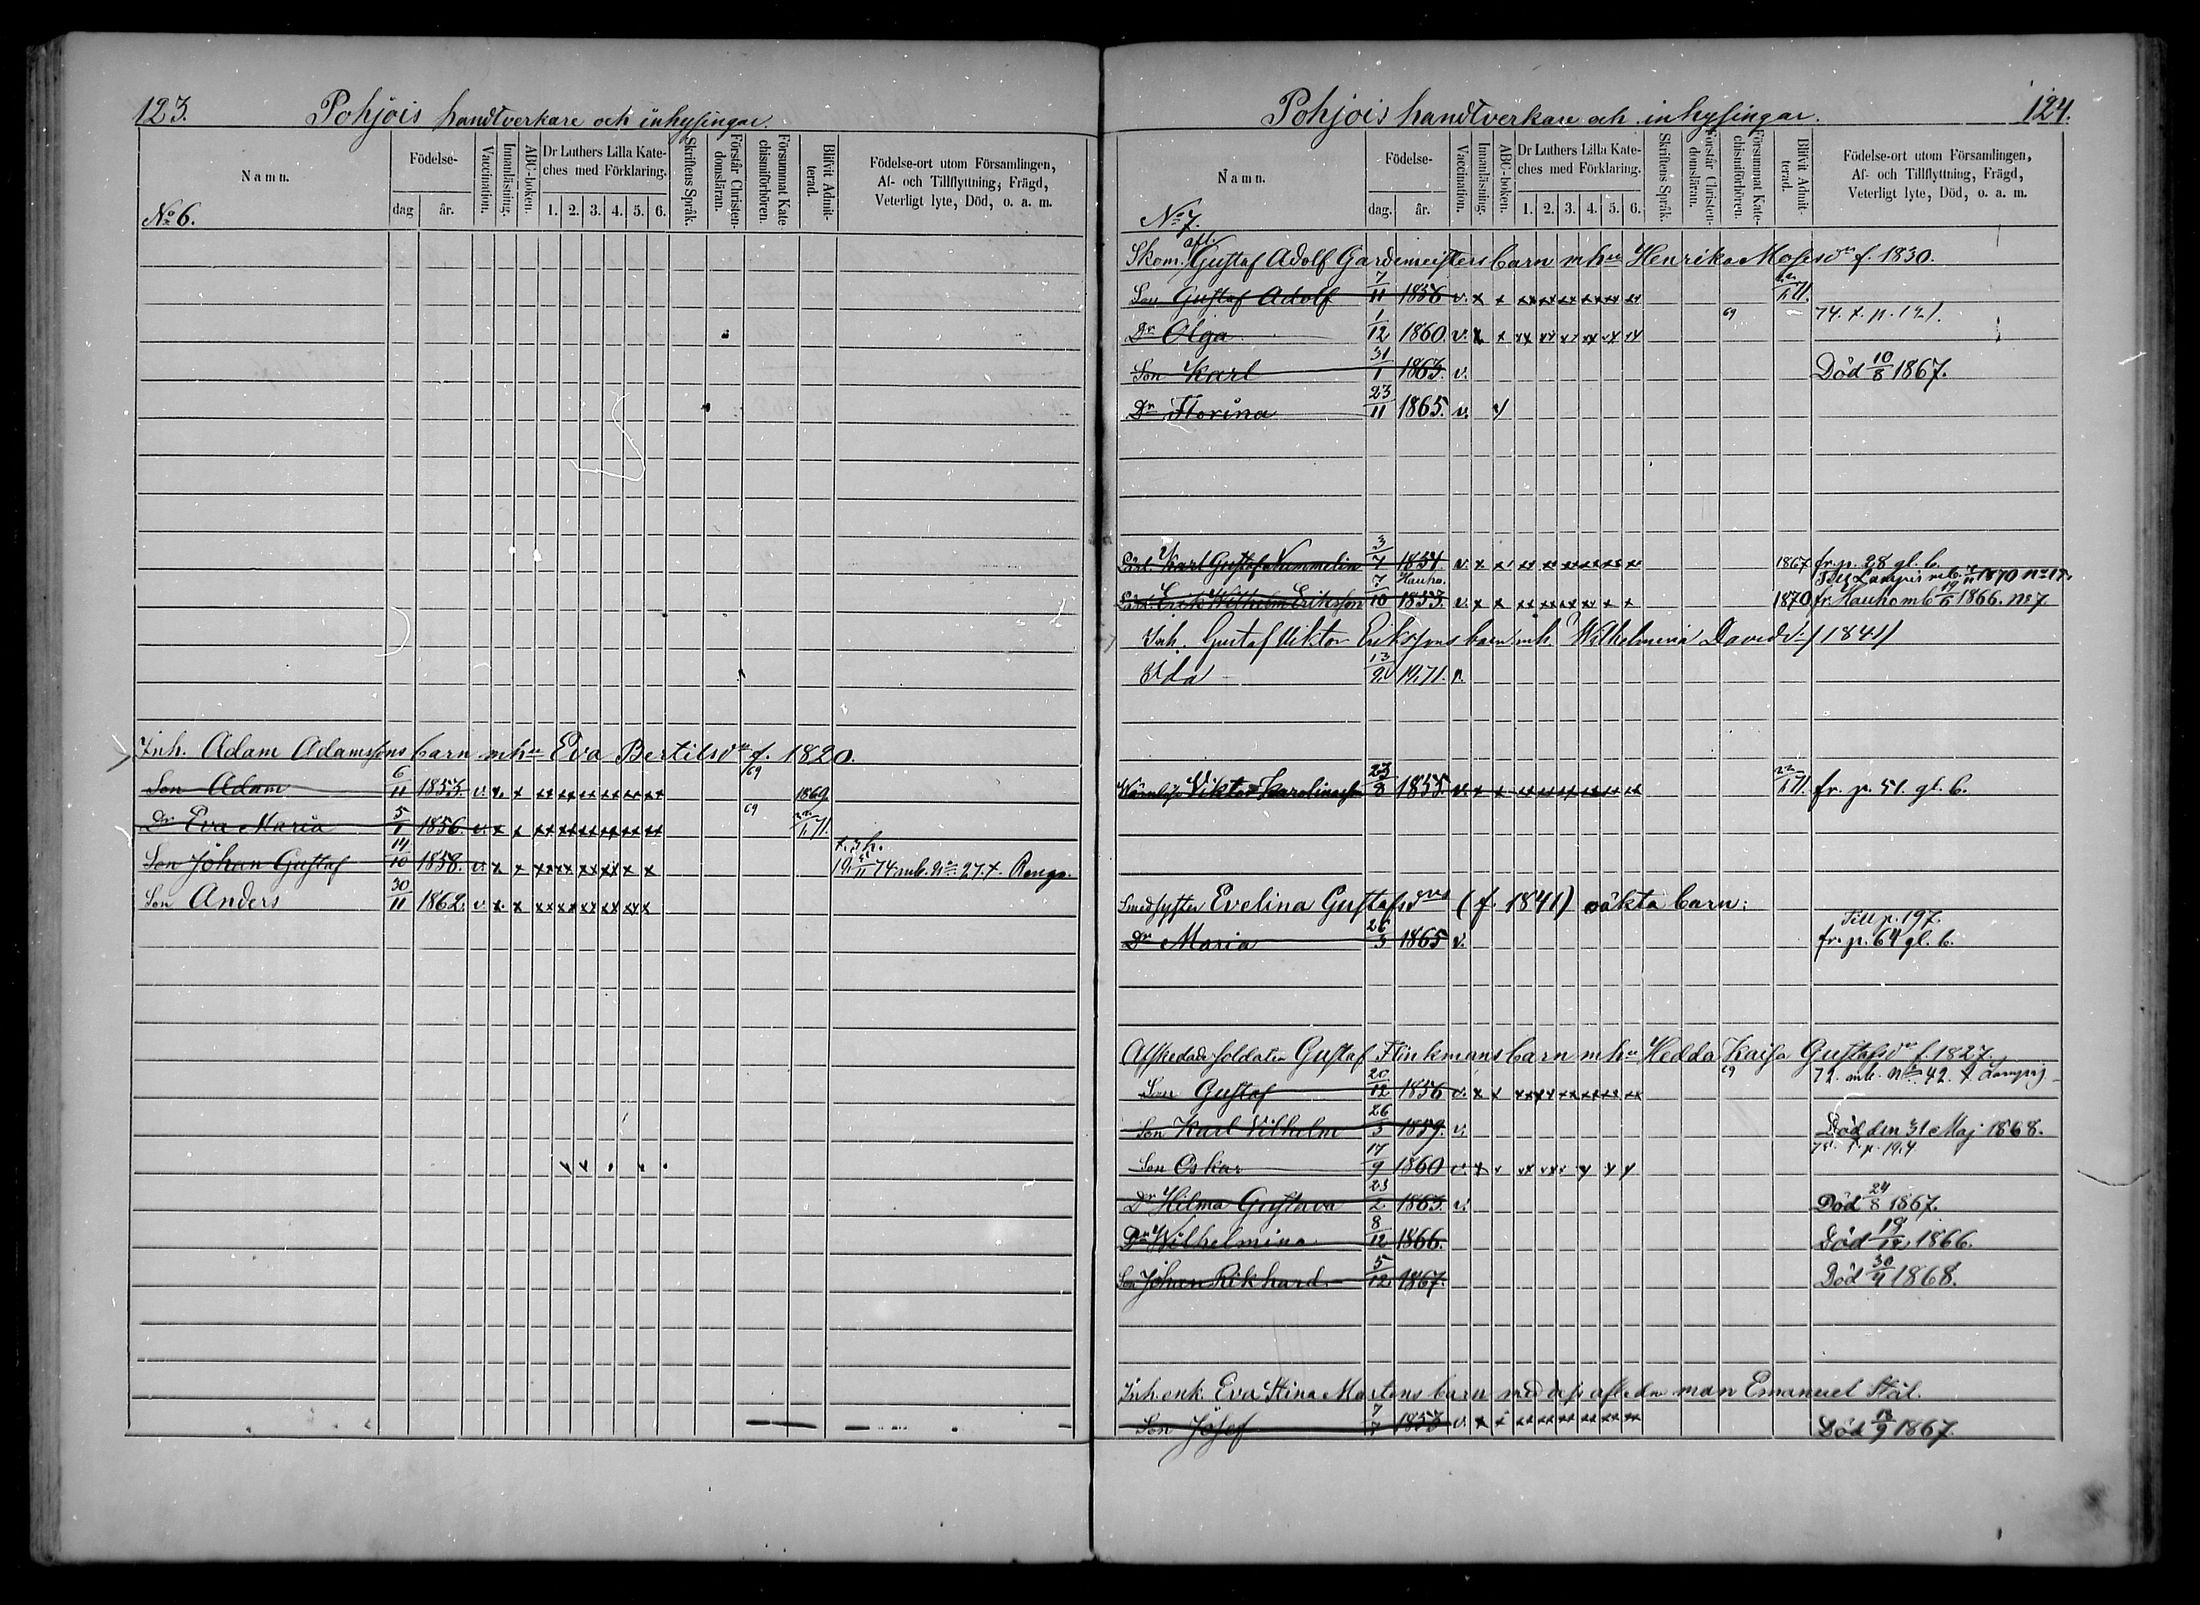 123.
Pohjois handtverkare och inhysingar.
Namn.
Födelse-
dag
år.
Vaccination.
Innanläsning.
ABC-boken.
Dr Luthers Lilla Kate-
ches med Förklaring.
1. 2. 3. 4. 5. 6.
Skriftens Språk.
Förstår Christen-
domsläran.
Försummat Kate
chismiförhören.
Blifvit Admit-
terad.
Födelse-ort utom Församlingen,
Af- och Tillflyttning, Frägd,
Veterligt lyte, Död, o. a. m.
No 6.
Inh. Adam Adamssons barn m hu Eva Bertilsdr f. 1820.
Son Adam 6/11 1853. v. x x xx xx xx xx xx xx 69 1869
Dr Eva Maria 5/1 1856. v. x x xx xx xx xx xx xx 69 22/1 71.
Son Johan Gustaf 14/10 1858. v. x x xx xx xx xx x x 74. mb. No 27. t. Rengo.
Son Anders 30/11 1862. v. x x xx xx xx xx xx x
Pohjois handtverkare och inhysingar.
124.
Namn.
Födelse-
dag.
år.
Vaccination.
Innanläsning.
ABC-boken.
Dr Luthers Lilla Kate-
ches med Förklaring.
1. 2. 3. 4. 5. 6.
Skriftens Språk.
Förstår Christen-
domsläran.
Försummat Kate-
chismiförhören.
Blifvit Admit-
terad.
Födelse-ort utom Församlingen,
Af- och Tillflyttning, Frägd,
Veterligt lyte, Död, o. a. m.
No 7.
Skom. afl. Gustaf Adolf Gardemeisters barn m hu Henrika Mosisdr f. 1830.
Son Gustaf Adolf 7/11 1856 v. x x xx xx xx xx xx xx 71.
69 74. t. p. 121.
Dr Olga 1/12 1860. v. x x xx xx xx xx xx xx
Son Karl 31/1 1863. v. Död 10/8 1867.
Dr Florina 23/11 1865. v.
Lärl. Karl Gustaf Nummelin 3/7 1854 v. x x xx xx xx xx xx xx 1867 fr. p. 28 gl. b.
Till Lampis mb. 1870 No 17.
Lärl. Erik Wilhelm Eriksson 7/10 Hauho. 1853. v. x x xx xx xx xx x x 1870 fr. Hauho mb 19/6 1866. No 7.
Inh. Gustaf Viktor Erikssons barn m h. Wilhelmina Davidsd. (1841)
Ida 13/9 1871. v.
Viktor Karolinasson 23/8 1855. v. x x xx xx xx xx xx xx 22/1 71. fr. p. 51. gl. b.
Smedsyster Evelina Gustafsdrs (f. 1841) oäkta barn:
Till p. 197.
Dr Maria 26/3 1865 v. fr. p. 64 gl. b.
Afskedade soldaten Gustaf Flinkmans barn m hu Hedda Kaisa Gustafsdr f. 1827.
69 72. mb. No 42. t. Lampis
Son Gustaf 20/12 1856 v. x x xx xx xx xx xx xx
Son Karl Vilhelm 26/3 1859. v. Död den 31 Maj 1868.
p. 194
Son Oskar 17/9 1860 v. x
Dr Hilma Gustava 23/2 1863. v. Död 24/8 1867.
Dr Wilhelmina 8/12 1866. Död 19/12 1866.
Son Johan Rikhard 5/12 1867. Död 30/4 1868.
Inh. enk. Eva Stina Mårtens barn med dess aflidne man Emanuel Stål.
Son Josef 7/7 1853 v. x x xx xx xx xx xx xx Död 13/9 1867.